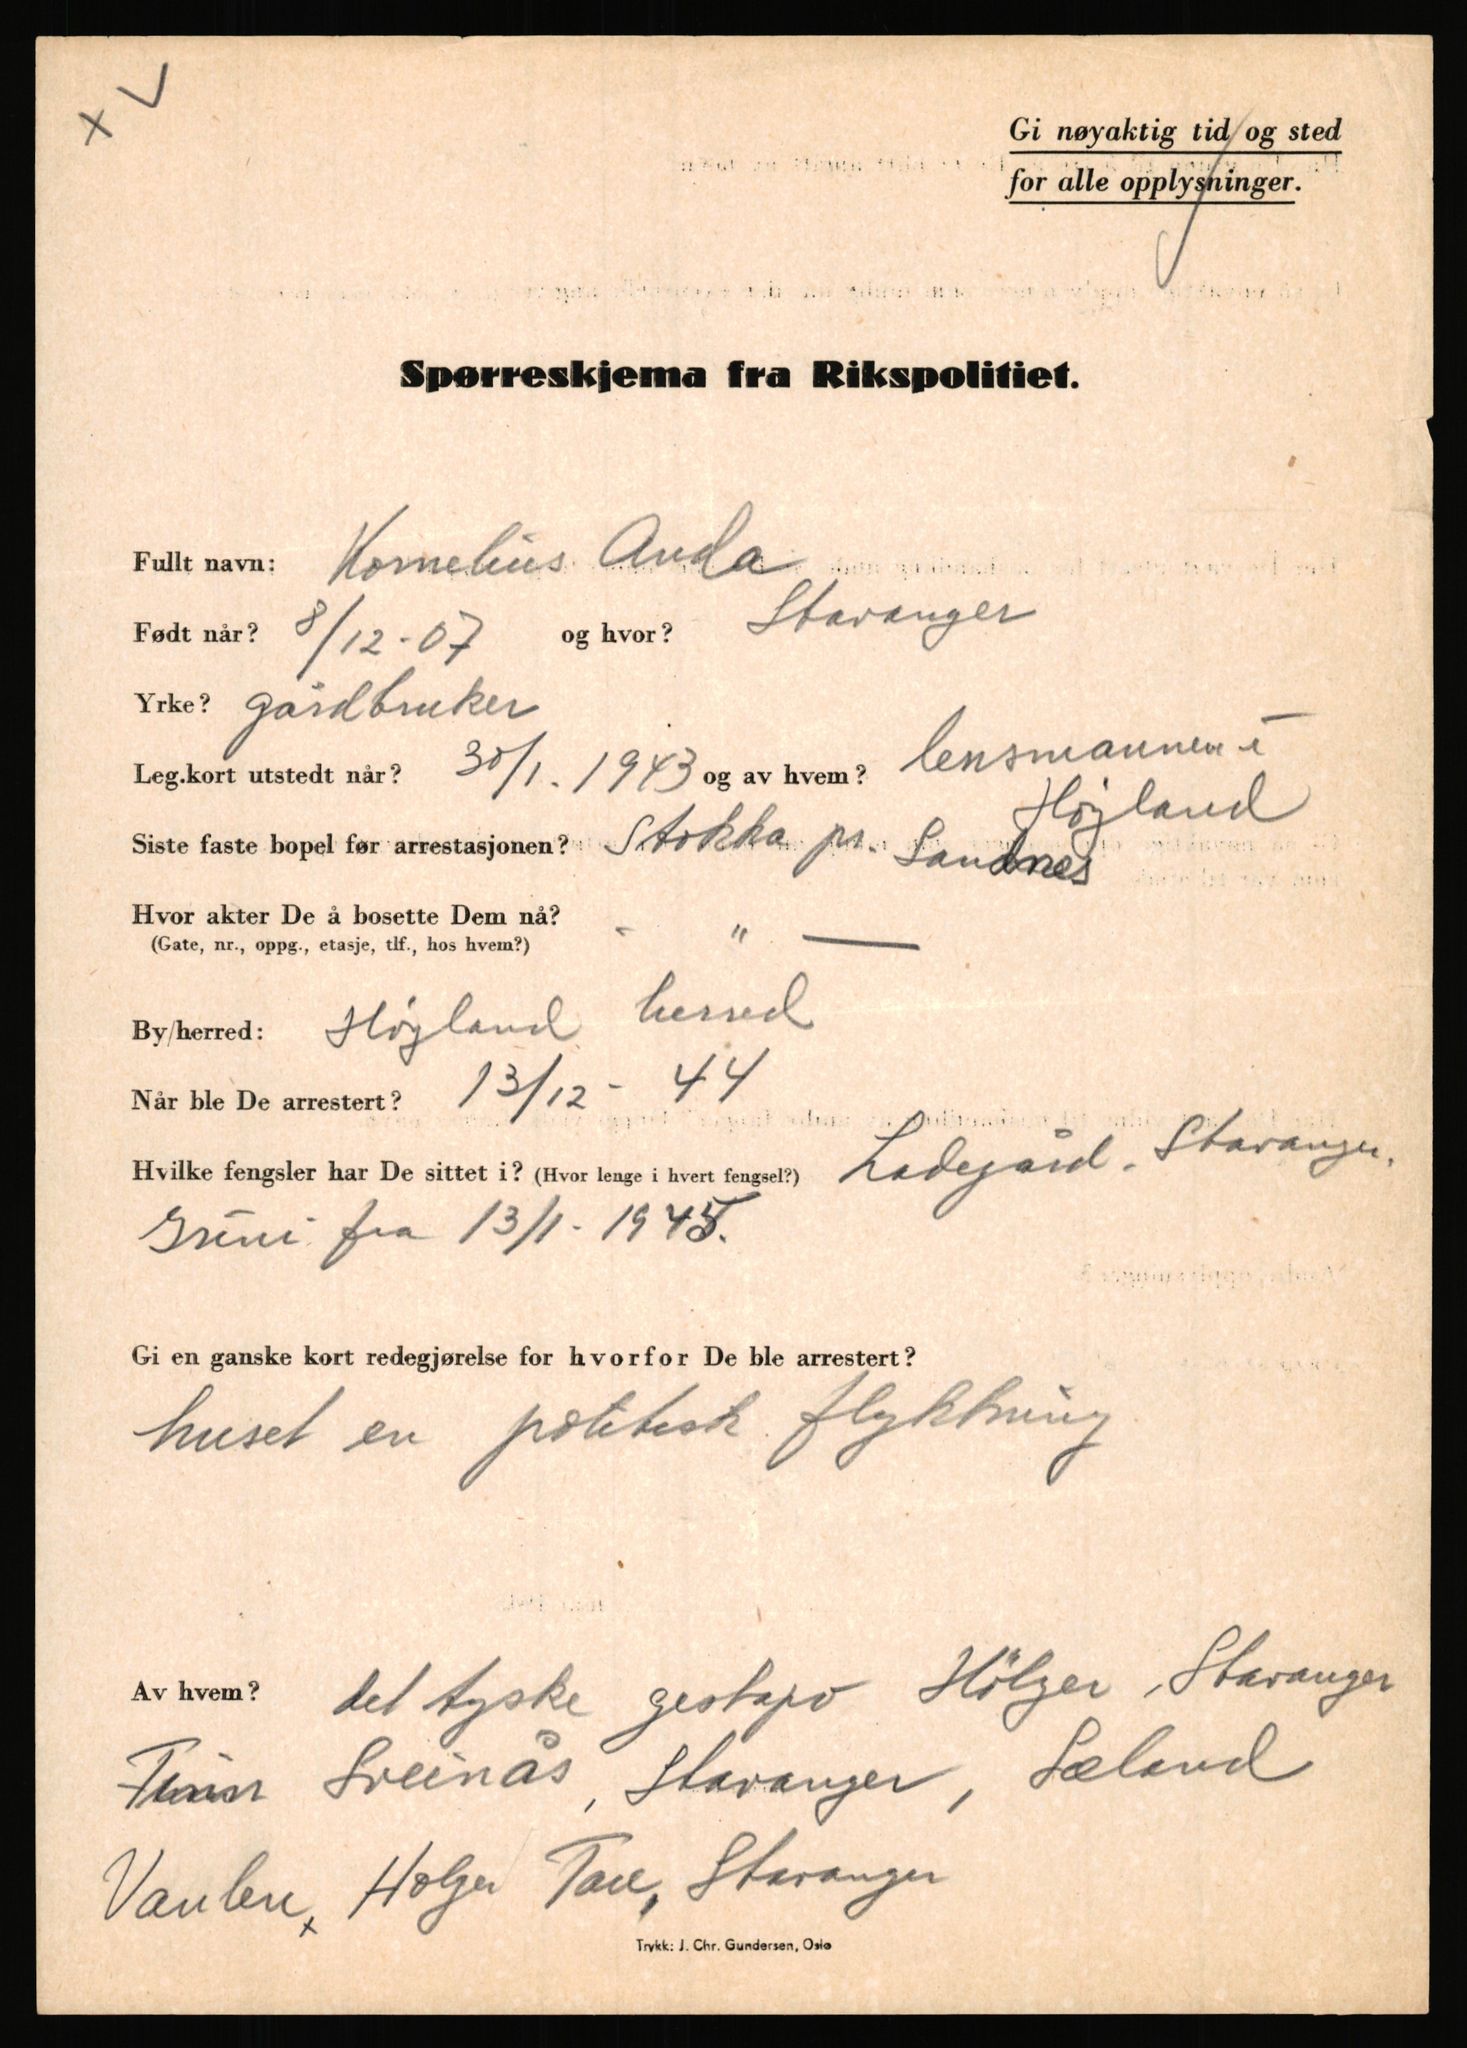 x V
Gi nøyaktig tid og sted
for alle opplysninger.
Spørreskjema fra Rikspolitiet.
Fullt navn: Kornelius Anda
Født når? 8/12-07 og hvor? Stavanger
Yrke? gårdbruker
Leg.kort utstedt når? 30/1. 1943 og av hvem? lensmannen i
Høyland
Siste faste bopel før arrestasjonen? Stokka pr. Sandnes
Hvor akter De å bosette Dem nå? - " —
(Gate, nr., oppg., etasje, tlf., hos hvem?)
By/herred: Høyland herred
Når ble De arrestert? 13/12 - 44
Hvilke fengsler har De sittet i? (Hvor lenge i hvert fengsel?) Ladegård. Stavanger.
Grini fra 13/1. 1945.
Gi en ganske kort redegjørelse for hvorfor De ble arrestert?
huset en politisk flyktning
Av hvem? det tyske gestapo Hölger, Stavanger
Sveinås, Stavanger, Sæland
Vaulen, x Holger Tou, Stavanger
Trykk: J. Chr. Gundersen, Oslo